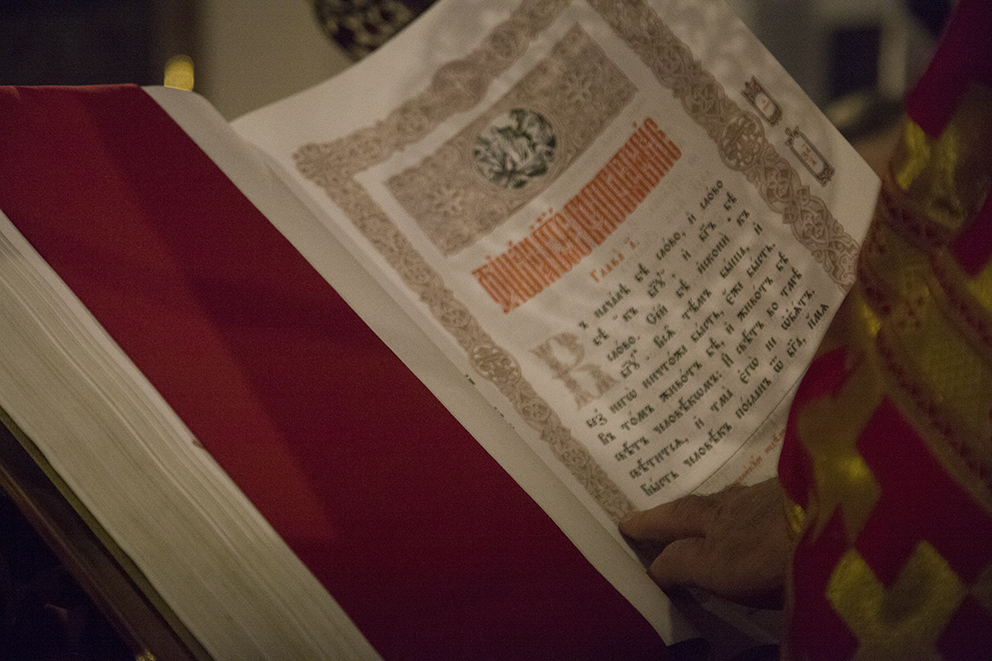 Глава̀ а҃.
Въ нача́лѣ бѣ̀ сло́во, и҆ сло́во
бѣ̀ къ бг҃ꙋ, и҆ бг҃ъ бѣ̀
сло́во. Се́й бѣ̀ и҆сконѝ къ
бг҃ꙋ: всѧ̑ тѣ́мъ бы́ша, и҆
без̾ негѡ̀ ничто́же бы́сть, є҆́же бы́сть.
въ то́мъ живо́тъ бѣ̀, и҆ живо́тъ бѣ̀
свѣ́тъ человѣ́кѡмъ: И҆ свѣ́тъ во тмѣ̀
свѣ́титсѧ, и҆ тма̀ є҆гѡ̀ не ѡ҆б̾ѧ́тъ.
Бы́сть человѣ́къ по́сланъ ѿ бг҃а, и҆́мѧ